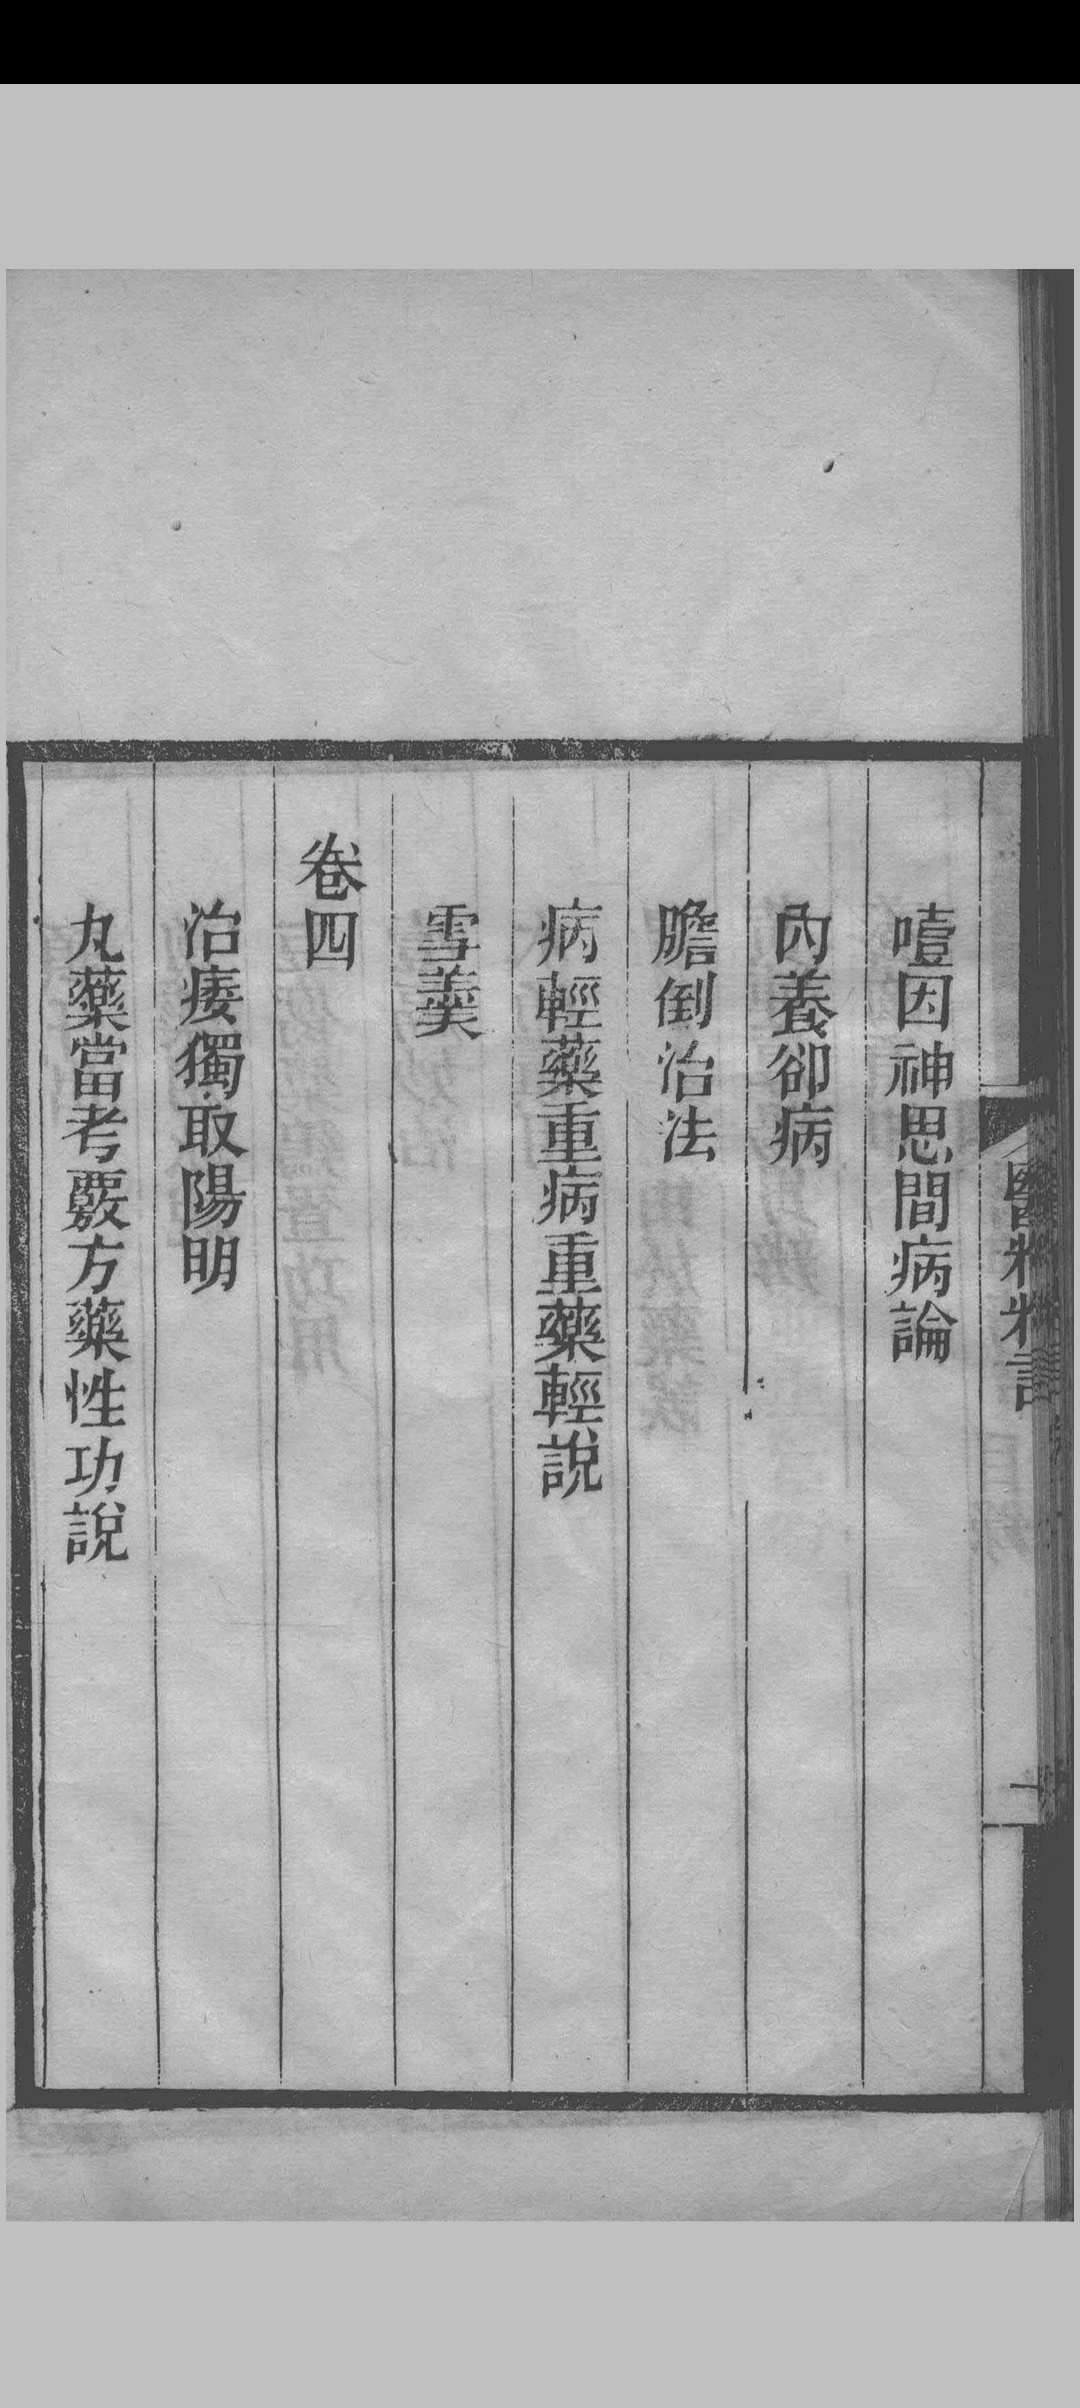 噎因神思間病論
內養卻病
膽倒治法
病輕藥重病重藥輕說
雪羹
卷四
治痿獨取陽明
丸藥當考覈方藥性功說